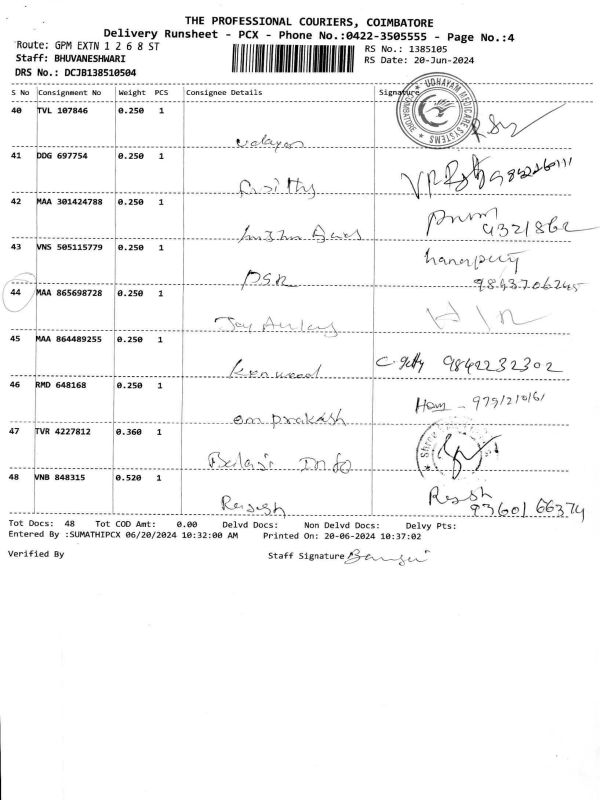 THE PROFESSIONAL COURIERS, COIMBATORE
Delivery Runsheet - PCX - Phone No.:0422-3505555 - Page No.:4
Route: GPM EXTN 1 2 6 8 ST
RS No.: 1385105
Staff: BHUVANESHWARI
RS Date: 20-Jun-2024
DRS No.: DCJB138510504
S No Consignment No Weight PCS Consignee Details Signature
UDHAYAM MEDICARE SYSTEMS
COIMBATORE
40 TVL 107846 0.250 1
41 DDG 697754 0.250 1
42 MAA 301424788 0.250 1
43 VNS 505115779 0.250 1
DSR
44 MAA 865698728 0.250 1
45 MAA 864489255 0.250 1
Kenwood 9842232302
46 RMD 648168 0.250 1
om prakash
47 TVR 4227812 0.360 1
Shree
Balaji Info
48 VNB 848315 0.520 1
Rajesh Rajesh
93601 66374
Tot Docs: 48 Tot COD Amt: 0.00 Delvd Docs: Non Delvd Docs: Delvy Pts:
Entered By :SUMATHIPCX 06/20/2024 10:32:00 AM Printed On: 20-06-2024 10:37:02
Verified By Staff Signature